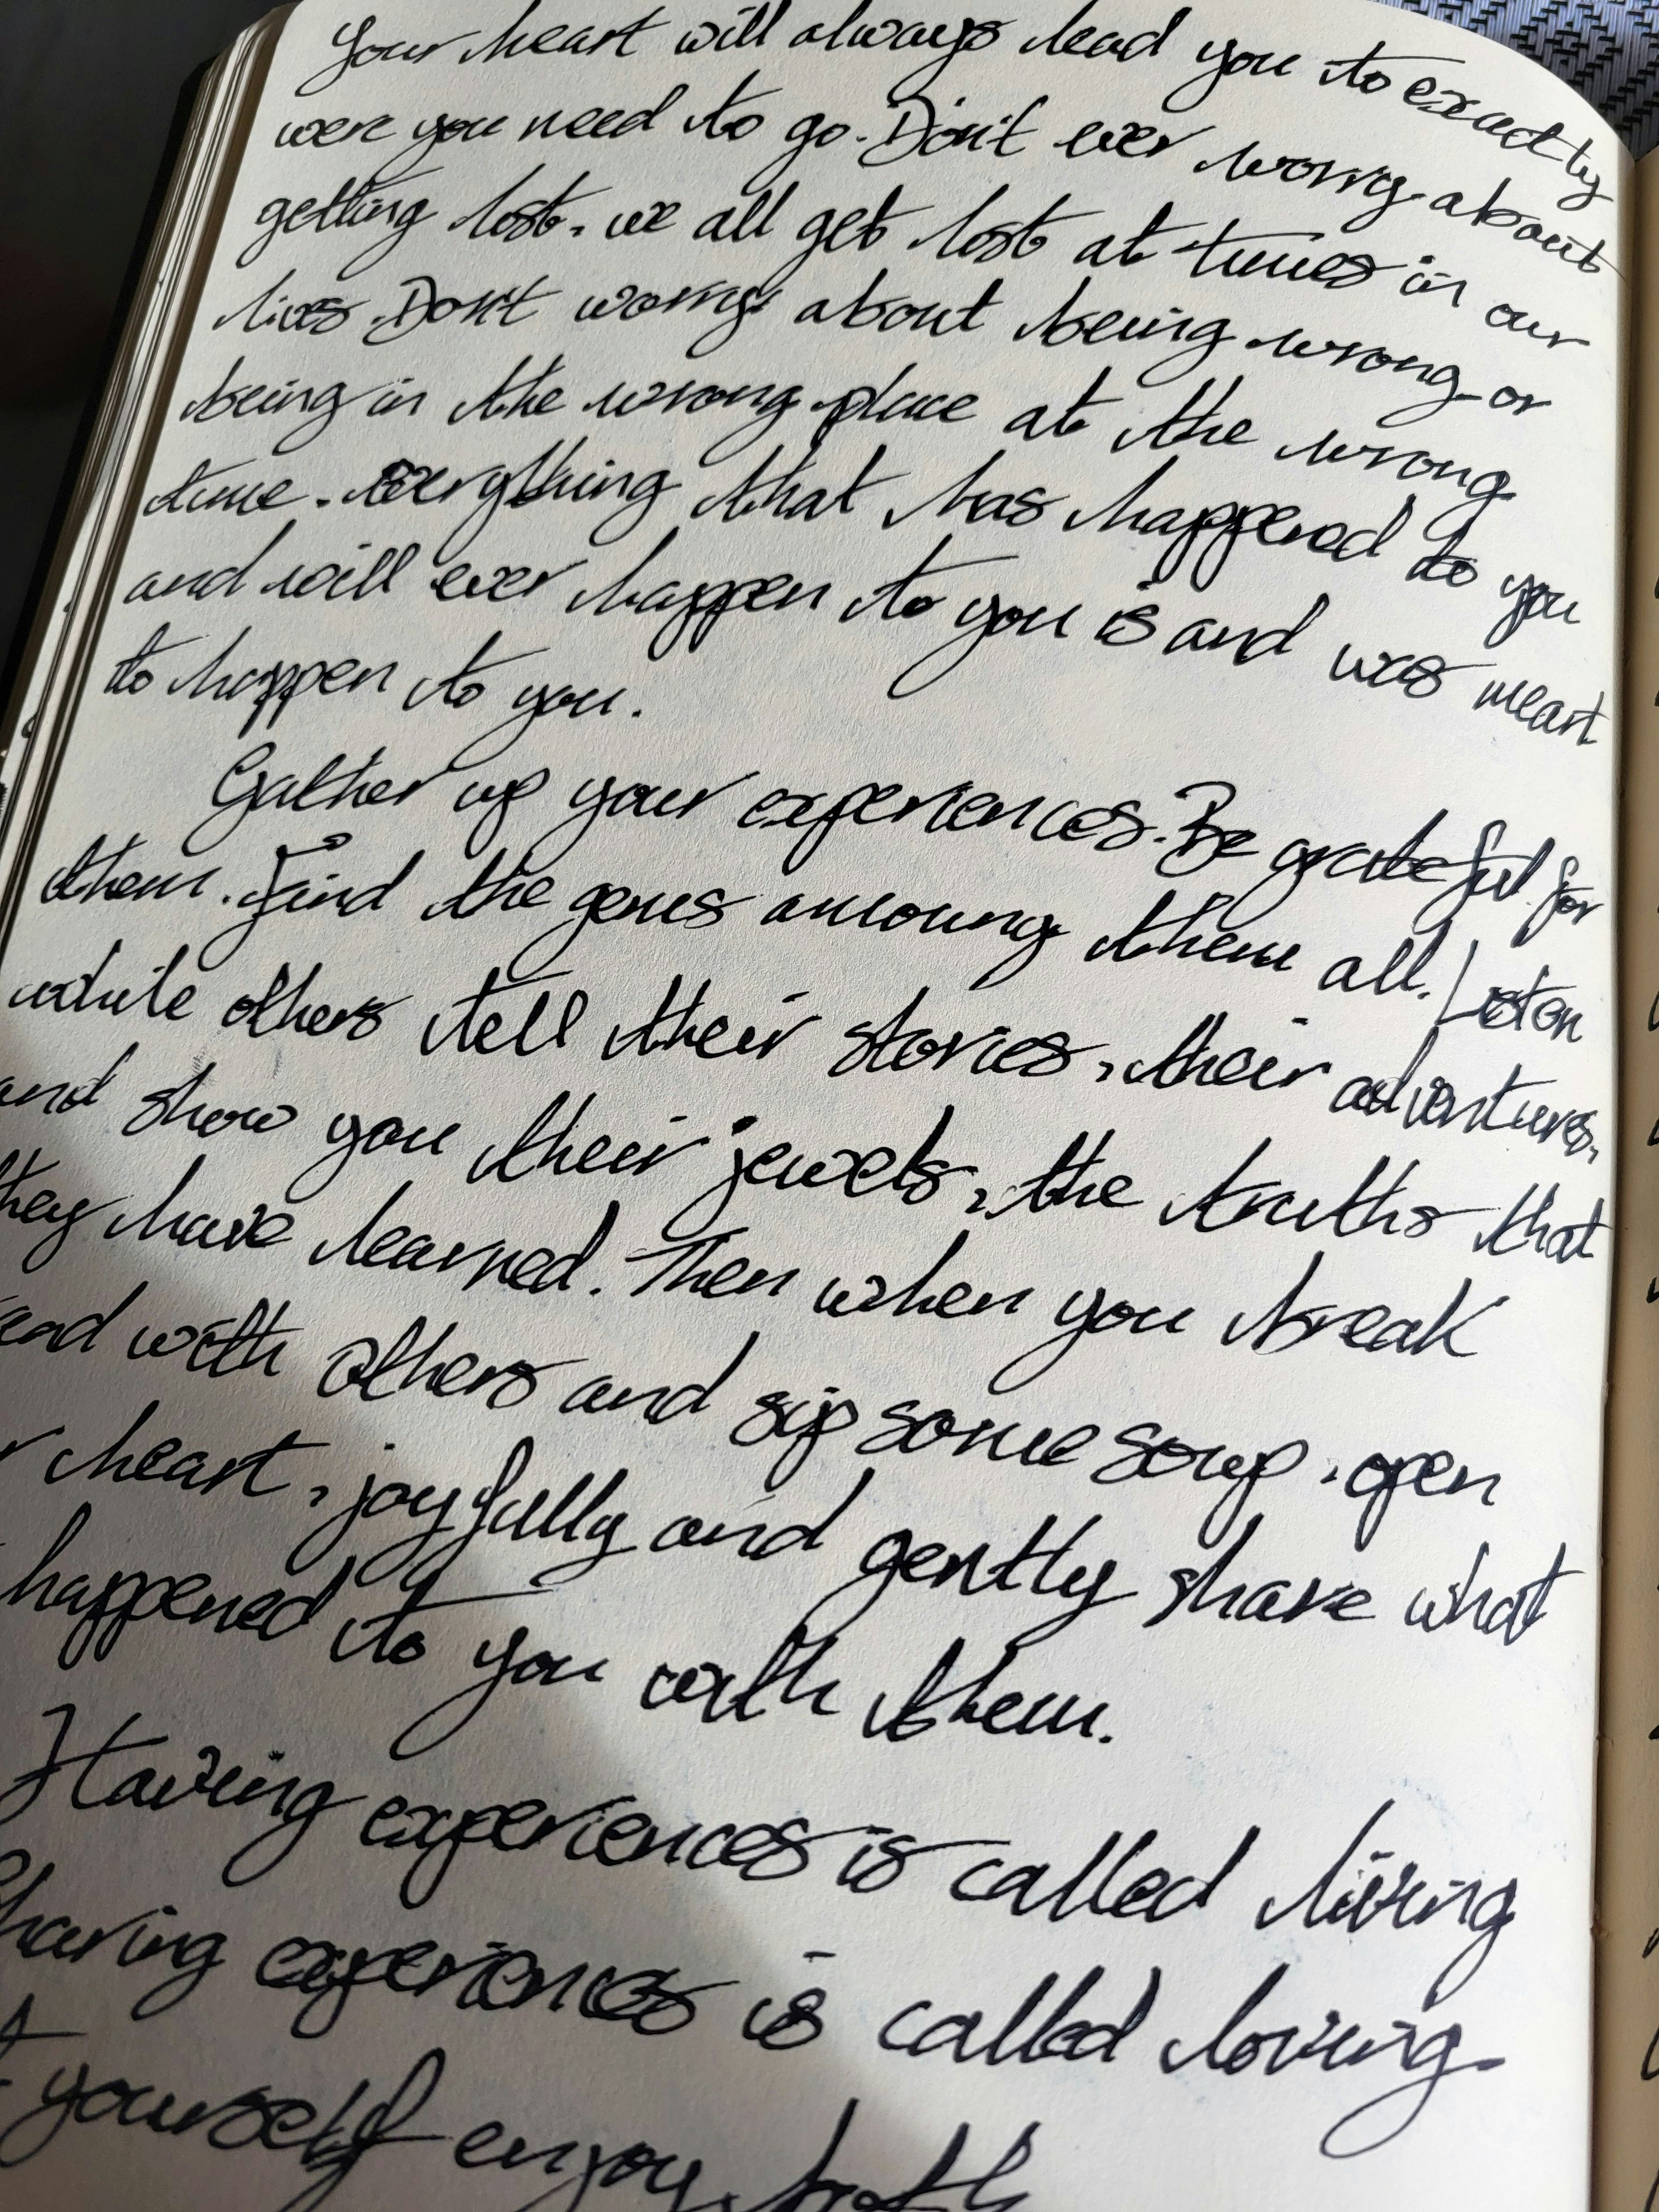 Your heart will always lead you to exactly
were you need to go. Don't ever worry about
getting lost, we all get lost at times in our
lives. Don't worry about being wrong or
being in the wrong place at the wrong
time. Everything that has happened to you
and will ever happen to you is and was meant
to happen to you.
Gather up your experiences. Be grateful for
them. Find the gems amoung them all. Listen
while others tell their stories, their adventures,
and show you their jewels, the truths that
they have learned. Then when you break
with others and sip some soup, open
heart, joyfully and gently share what
happened to you with them.
Having experiences is called living
haring experiences is called loving.
yourself enjoy both